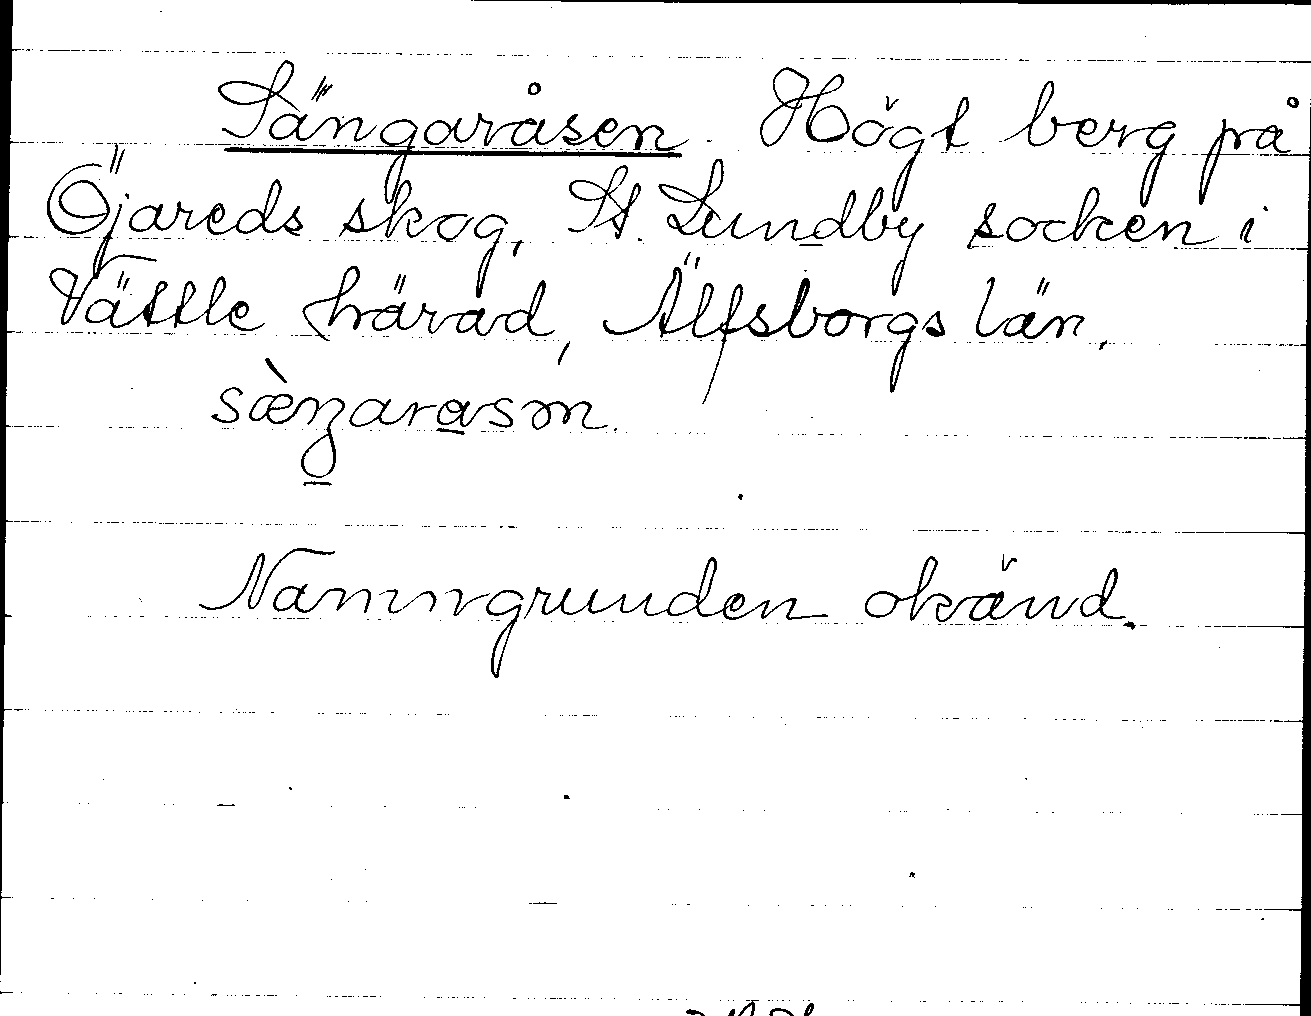 Sängaråsen. Högt berg på
Öjareds skog, St. Lundby socken i
Vättle härad, Älfsborgs län.
sæ̀ŋarasən.
Namngrunden okänd.